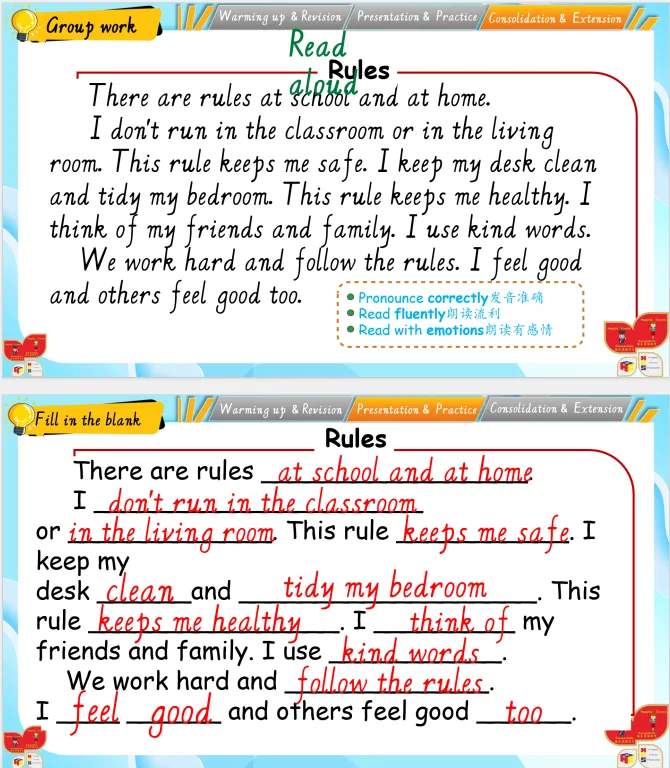 Group work
Warming up & Revision
Presentation & Practice
Consolidation & Extension
Read
aloud
Rules
There are rules at school and at home.
I don't run in the classroom or in the living
room. This rule keeps me safe. I keep my desk clean
and tidy my bedroom. This rule keeps me healthy. I
think of my friends and family. I use kind words.
We work hard and follow the rules. I feel good
and others feel good too.
Pronounce correctly发音准确
Read fluently朗读流利
Read with emotions朗读有感情
Fill in the blank
Warming up & Revision
Presentation & Practice
Consolidation & Extension
Rules
There are rules at school and at home.
I don't run in the classroom
or in the living room. This rule keeps me safe. I
keep my
desk clean and tidy my bedroom. This
rule keeps me healthy. I think of my
friends and family. I use kind words.
We work hard and follow the rules.
I feel good and others feel good too.